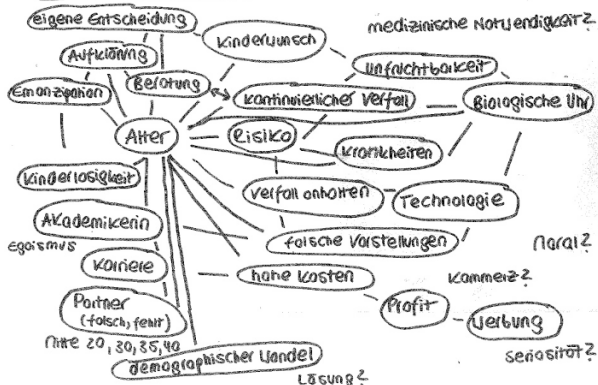 eigene Entscheidung
Kinderwunsch
medizinische Notwendigkeit?
Aufklärung
Unfruchtbarkeit
Emanzipation
Beratung
Kontinuierlicher Verfall
Biologische Uhr
Alter
Risiko
Krankheiten
Kinderlosigkeit
Verfall anhalten
Technologie
Akademikerin
Egoismus
falsche Vorstellungen
Moral?
Karriere
hohe Kosten
Kommerz?
Partner
(falsch, fehlt)
Profit
Werbung
Mitte 20, 30, 35, 40
Seriosität?
demographischer Wandel
Lösung?